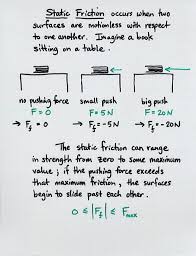 Static Friction occurs when two
surfaces are motionless with respect
to one another. Imagine a book
sitting on a table.
no pushing force small push big push
F = 0 F = 5N F = 20N
→ Ff = 0 → Ff = -5N → Ff = -20N
The static friction can range
in strength from zero to some maximum
value; if the pushing force exceeds
that maximum friction, the surfaces
begin to slide past each other.
0 ≤ |Ff| ≤ Fmax